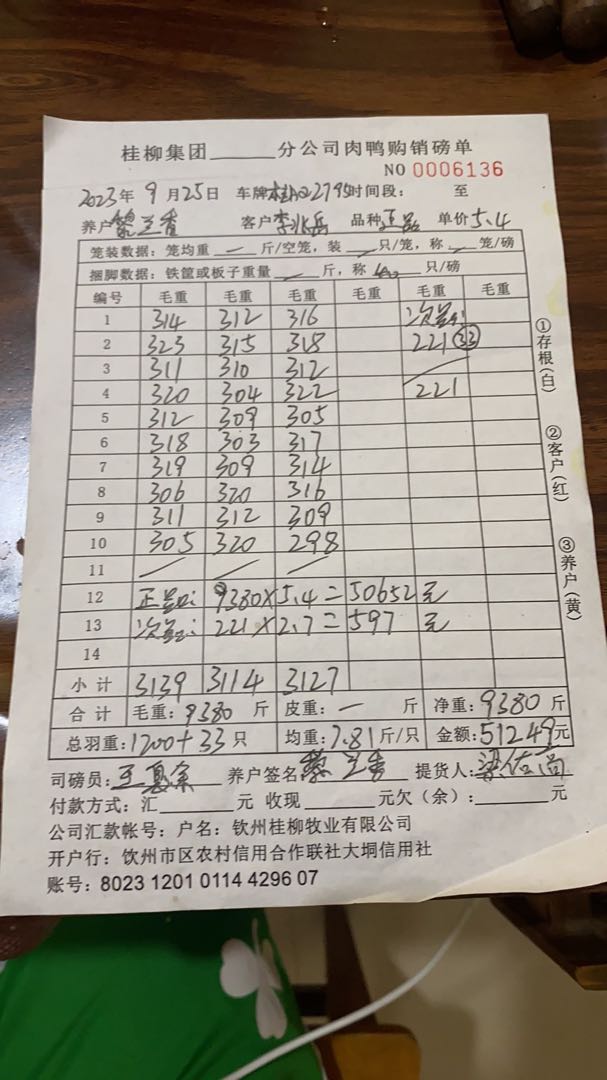 桂柳集团______分公司肉鸭购销磅单
NO 0006136
2023年9月25日 车牌桂A02795时间段: 至
养户黎兰香 客户李兆岳 品种正品 单价5.4
笼装数据: 笼均重 — 斤/空笼, 装 — 只/笼, 称 — 笼/磅
捆脚数据: 铁筐或板子重量 — 斤, 称40 只/磅
编号 毛重 毛重 毛重 毛重 毛重 毛重
1 314 312 316 次品:
2 323 315 318 221 33
3 311 310 312
4 320 304 322 221
5 312 309 305
6 318 303 317
7 319 309 314
8 306 320 316
9 311 312 309
10 305 320 298
11 / / /
12 正品: 9380×5.4=50652元
13 次品: 221×2.7=597 元
14
小计 3139 3114 3127
合计 毛重: 9380 斤 皮重: — 斤 净重: 9380 斤
总羽重: 1200+33 只 均重: 7.81斤/只 金额: 51249元
司磅员: 养户签名: 黎兰香 提货人:
付款方式: 汇______元 收现______元欠(余): ______元
公司汇款帐号: 户名: 钦州桂柳牧业有限公司
开户行: 饮州市区农村信用合作联社大垌信用社
账号: 8023 1201 0114 4296 07
①存根(白)
②客户(红)
③养户(黄)